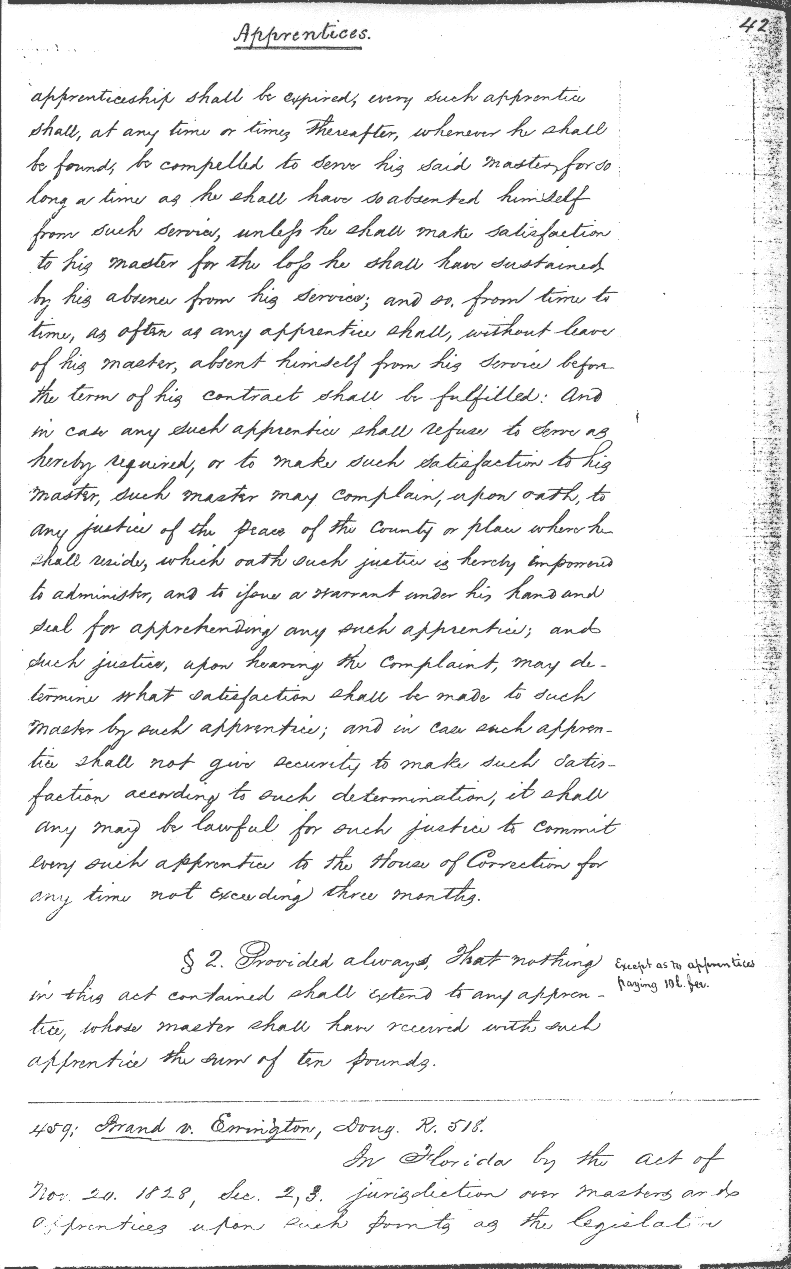 Apprentices.
42
apprenticeship shall be expired, every such apprentice
shall, at any time or times thereafter, whenever he shall
be found, be compelled to serve his said master, for so
long a time as he shall have so absented himself
from such service, unless he shall make satisfaction
to his master for the loss he shall have sustained
by his absence from his service; and so, from time to
time, as often as any apprentice shall, without leave
of his master, absent himself from his service before
the term of his contract shall be fulfilled: And
in case any such apprentice shall refuse to serve as
hereby required, or to make such satisfaction to his
master, such master may complain, upon oath, to
any justice of the peace of the County or place where he
shall reside, which oath such justice is hereby impowered
to administer, and to issue a warrant under his hand and
seal for apprehending any such apprentice; and
such justice, upon hearing the complaint, may de-
termine what satisfaction shall be made to such
master by such apprentice; and in case such appren-
tice shall not give security to make such satis-
faction according to such determination, it shall
any may be lawful for such justice to commit
every such apprentice to the House of Correction for
any time not exceeding three months.
§ 2. Provided always, That nothing
Except as to apprentices
paying 10£. fee.
in this act contained shall extend to any appren-
tice, whose master shall have received with such
apprentice the sum of ten pounds.
459; Brand v. Errington, Doug. R. 518.
In Florida by the act of
Nov. 20. 1828, Sec. 2, 3. jurisdiction over masters and
apprentices upon such points as the legislat